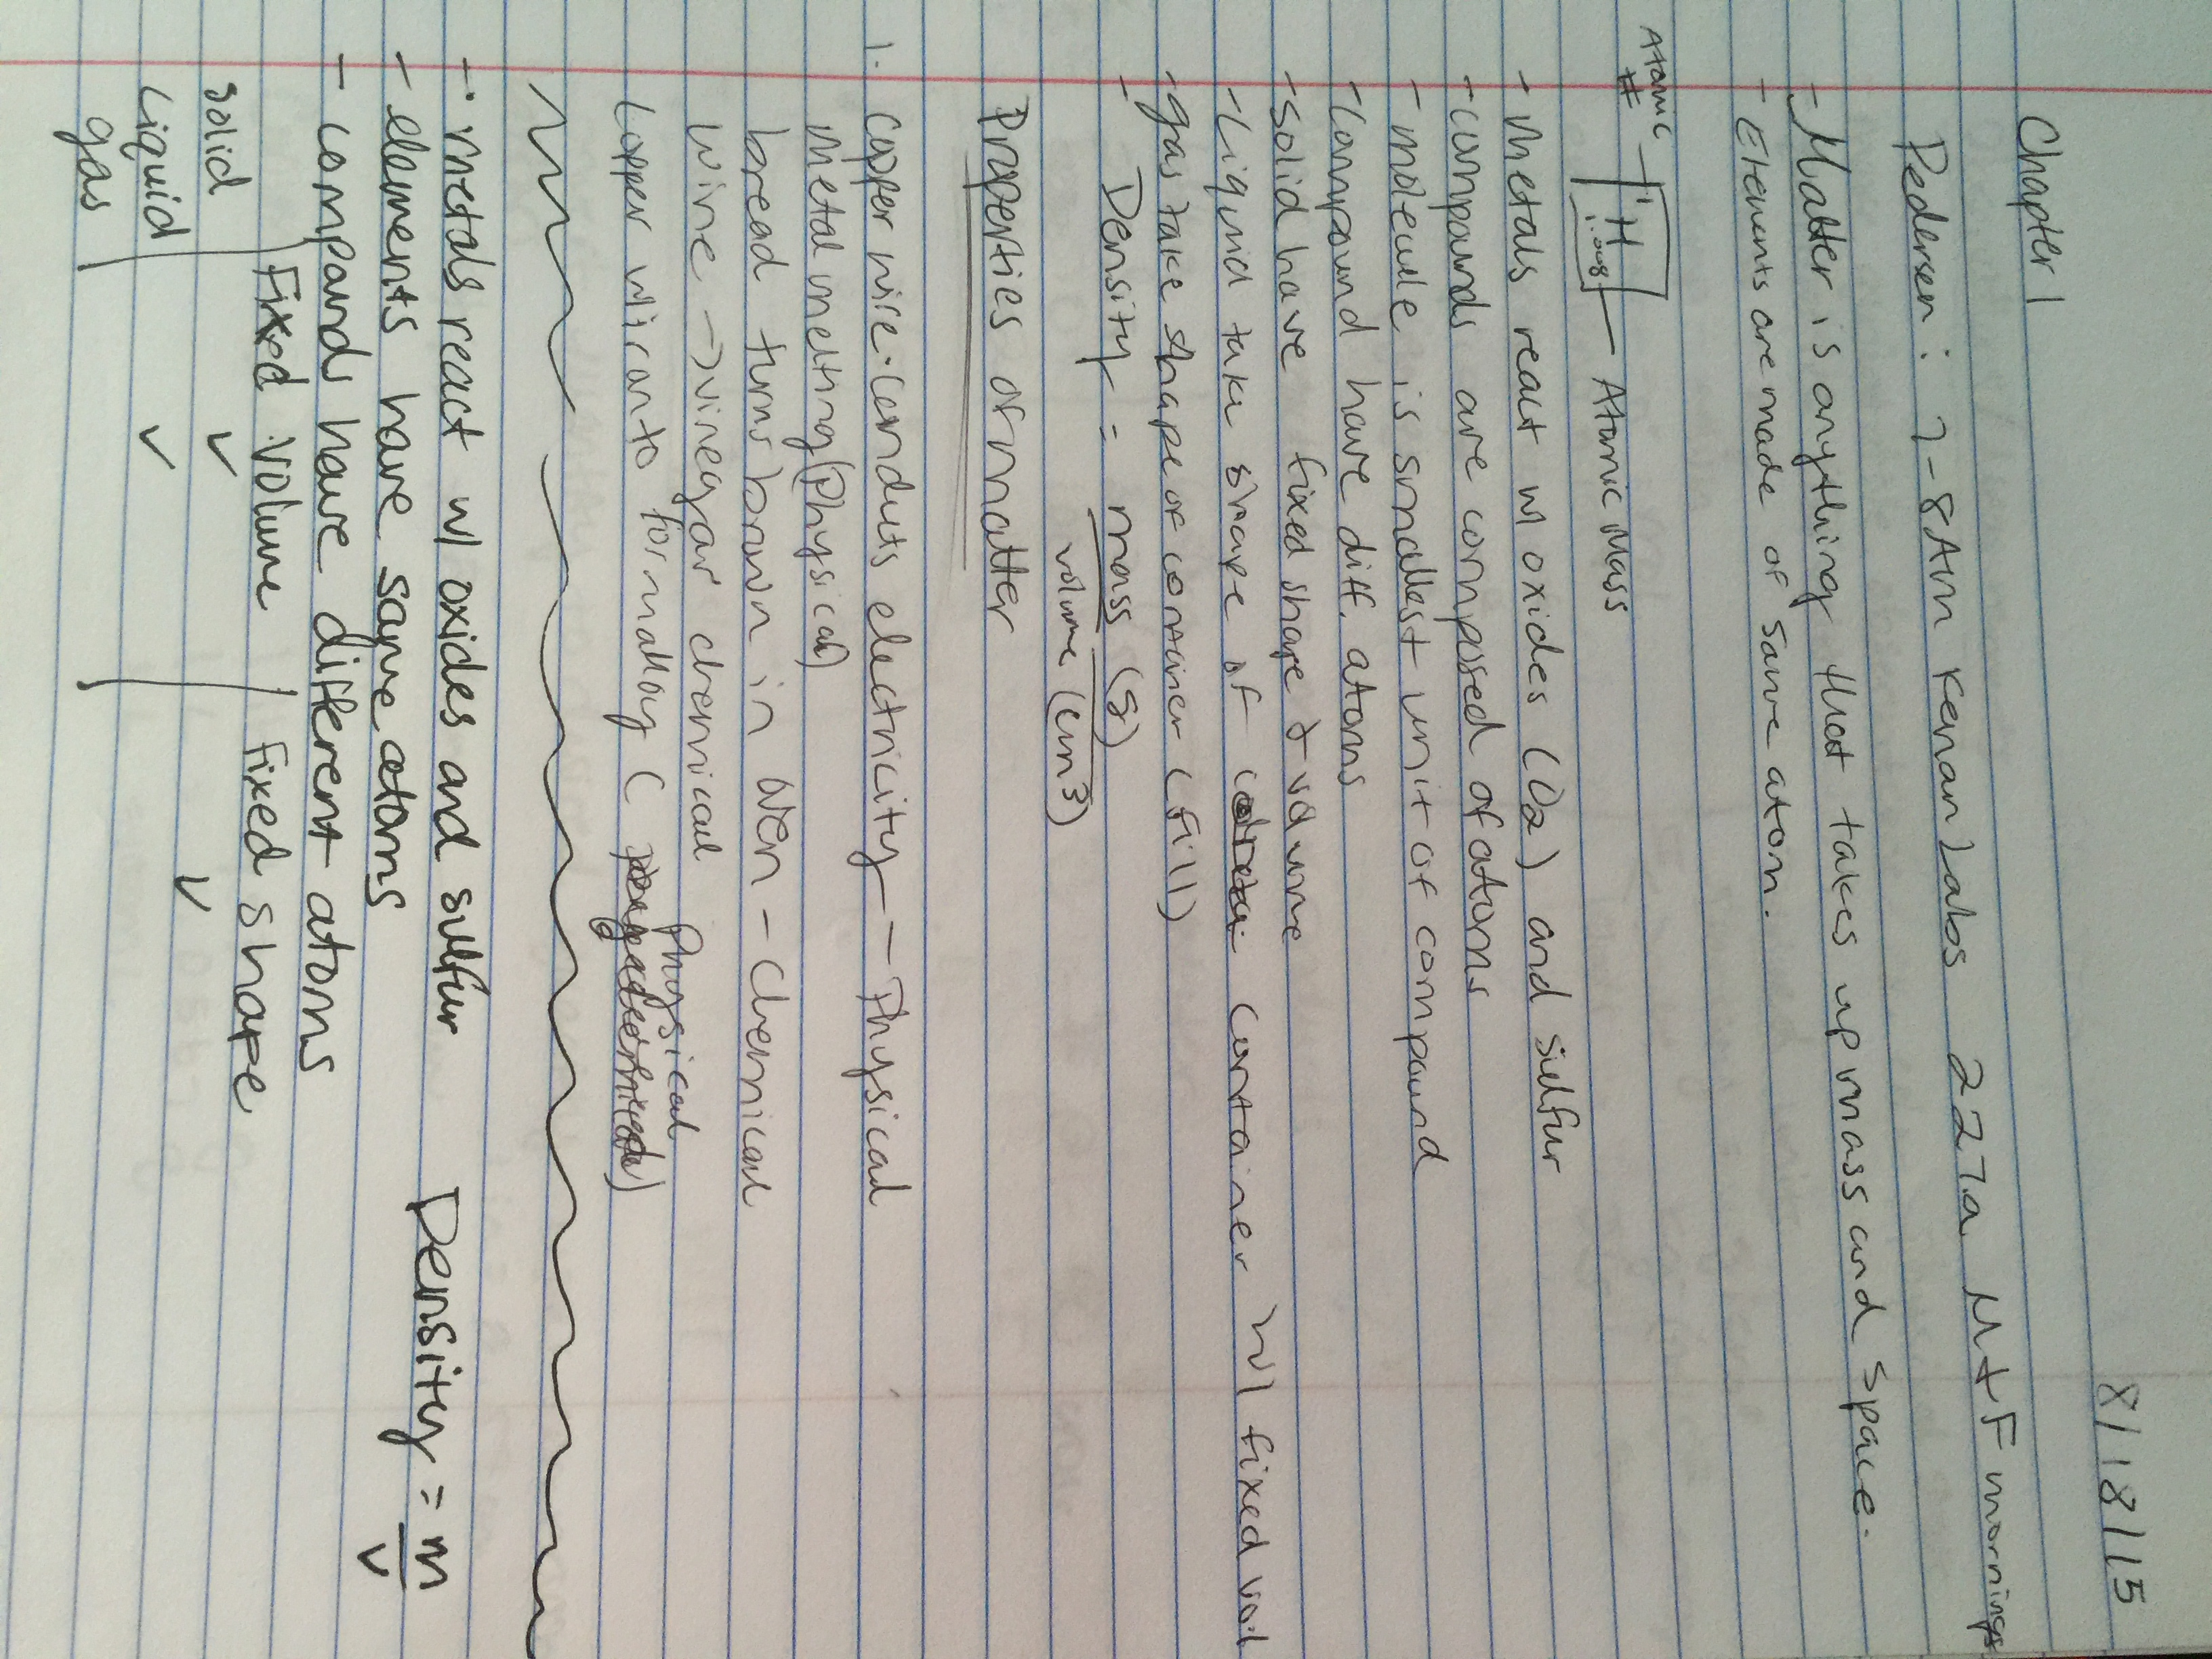 8/18/15
Chapter 1
Pedersen: 7-8AM Kenan Labs 227a M+F mornings
- Matter is anything that takes up mass and space.
- Elements are made of same atom.
Atomic # H 1.008 Atomic Mass
- Metals react w/ oxides (O2) and sulfur
- compounds are composed of atoms
- molecule is smallest unit of compound
- Compound have diff. atoms
- solid have fixed shape & volume
- Liquid take shape of container w/ fixed vol
- gas take shape of container (fill)
- Density = mass (g)
volume (cm3)
Properties of matter
1. Copper wire - Conducts electricity - Physical
Metal melting (Physical)
bread turns brown in oven - Chemical
Wine → vinegar chemical
Physical
Copper w/ to form alloy (
- metals react w/ oxides and sulfur
- elements have same atoms
Density = m
v
- compounds have different atoms
Fixed volume fixed shape
solid ✓ ✓
Liquid ✓
gas